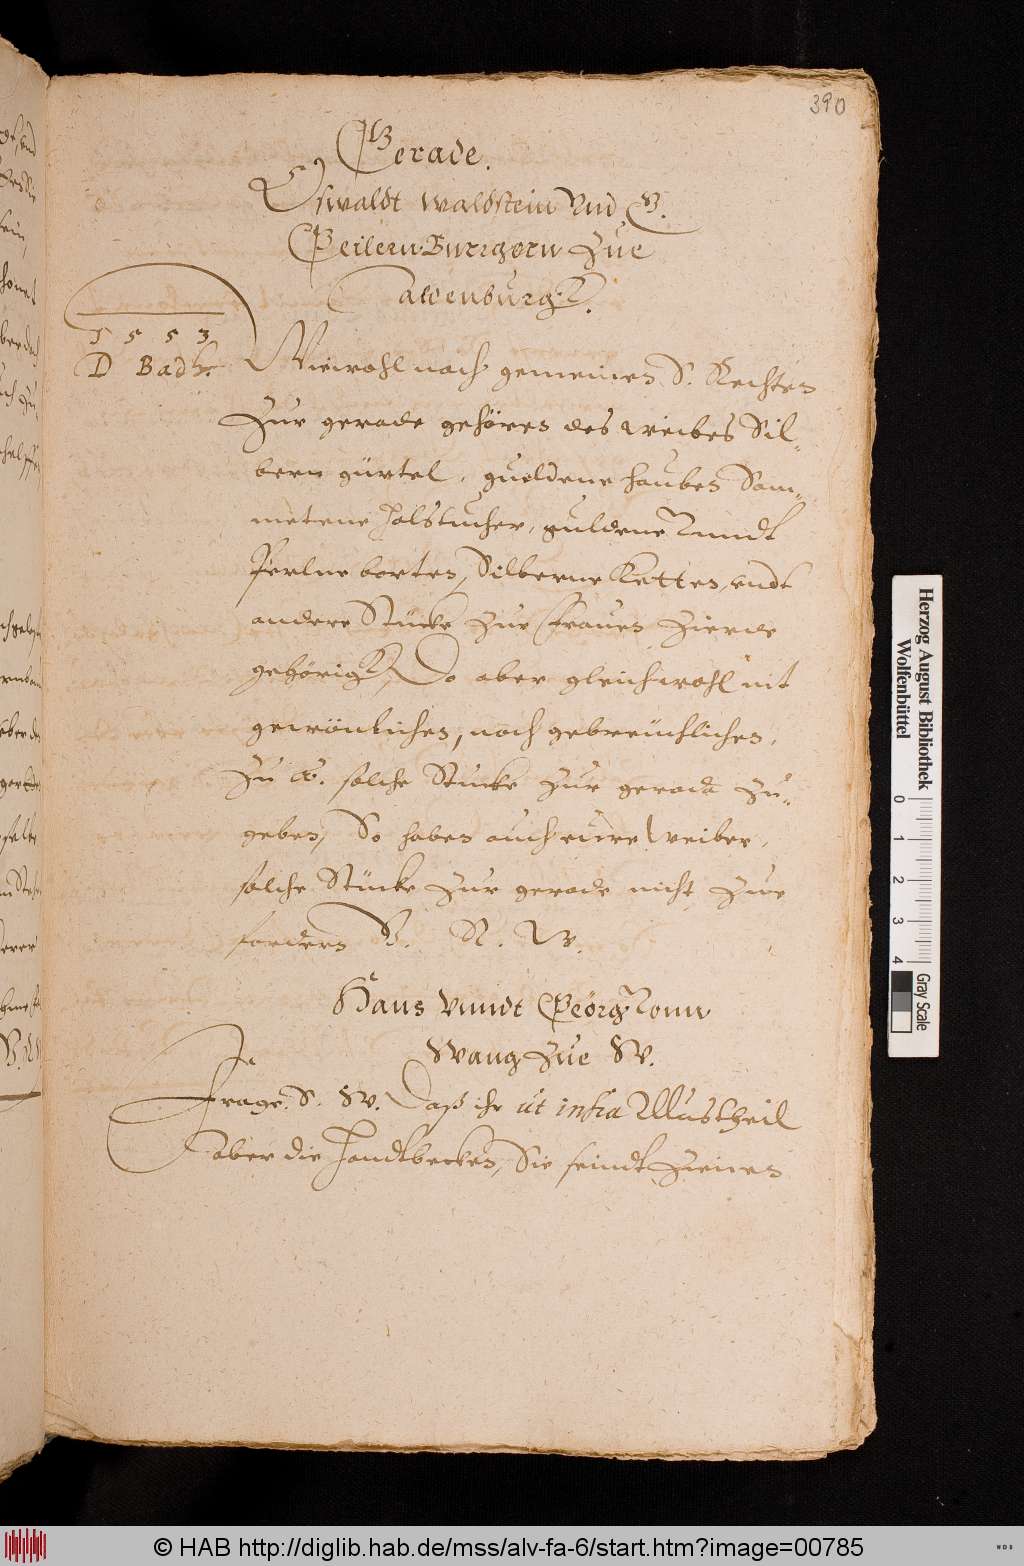 390
Gerade.
Oswaldt Waldstein Vnd G.
Geilern Burrgern Zue
Aldenburgk.
1553
D Badh.
Wiewohl nach gemeinen S. Rechten
Zur gerade gehören des weibes Sil-
bern gürtel, gueldene hauben Sam-
metene Halstucher, guldene Vnndt
Perlne borten, Silberne Ketten, vndt
andere Stücke zur Frauen Zierde
gehörigk, Do aber gleichwohl nit
gewönlichen, noch gebreuchlichen,
Zu A. solche Stucke zur gerade zu-
geben, So haben auch eure Weiber,
solche Stücke zur gerade nicht zue
fordern V. R. W.
Hans Vnndt Geörg Vonn
Wang Zue W.
Frage. S. W. Daß ihr ut infra Musstheil
aber die Handtbecken, Sie seindt
Herzog August Bibliothek
Wolfenbüttel
0 1 2 3 4
Gray Scale
© HAB http://diglib.hab.de/mss/alv-fa-6/start.htm?image=00785